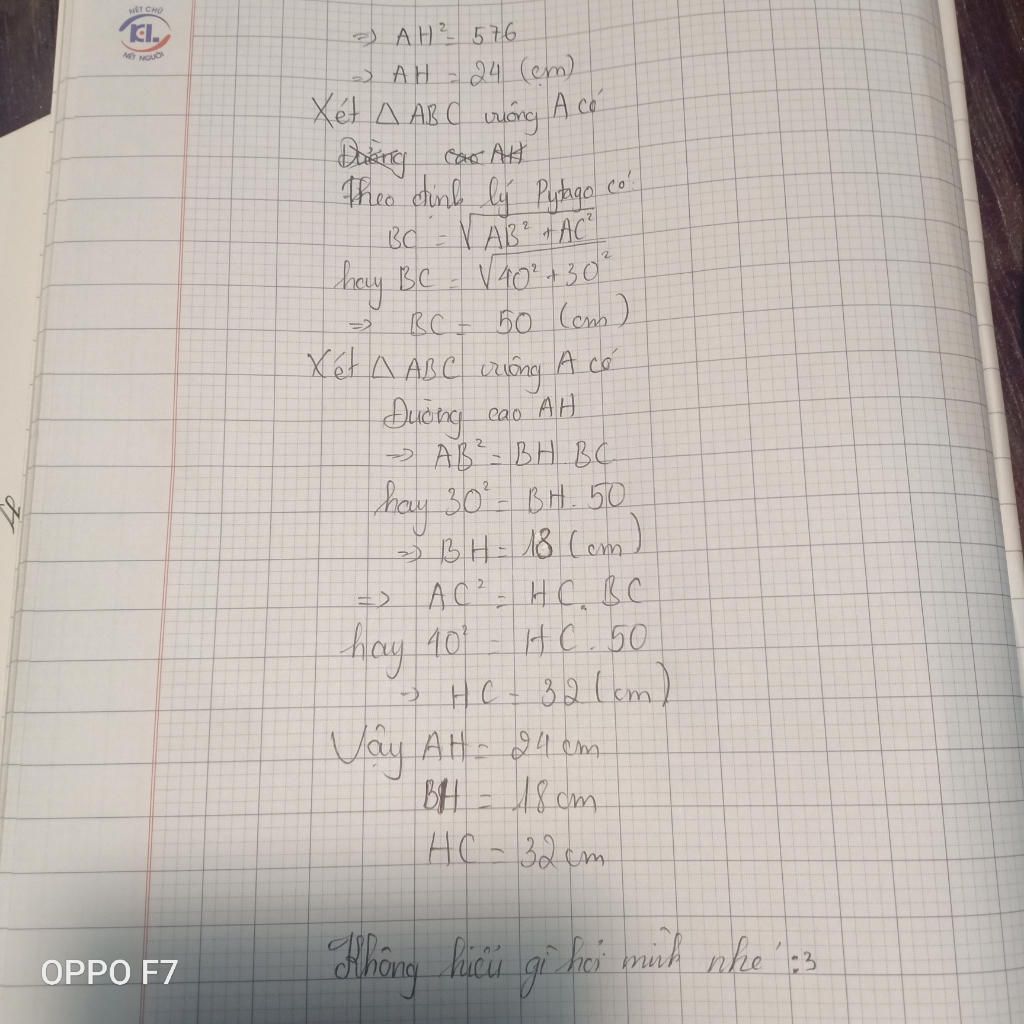 NÉT CHỮ
KL
NẾT NGƯỜI
=> AH² = 576
=> AH = 24 (cm)
Xét △ ABC vuông A có
Đường cao AH
Theo định lý Pytago có:
BC = √AB² + AC²
hay BC = √40² + 30²
=> BC = 50 (cm)
Xét △ ABC vuông A có
Đường cao AH
=> AB² = BH BC
hay 30² = BH. 50
=> BH = 18 (cm)
=> AC² = HC. BC
hay 40² = HC. 50
=> HC = 32 (cm)
Vậy AH = 24 cm
BH = 18 cm
HC = 32 cm
Không hiểu gì hỏi mình nhé :3
OPPO F7